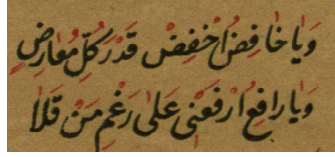 وَيَا خَافِضُ اخْفِضْ قَدْرَ كُلِّ مُعَارِضٍ
وَيَا رَافِعُ ارْفَعْنِى عَلٰى رَغْمِ مَنْ قَلَا